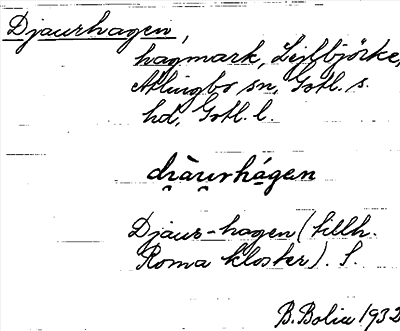 Djaurhagen,
hagmark, Lejlbjörke,
Atlingbo sn, Gotl. s.
hd, Gotl. l.
Djaur-hagen (tillh.
Roma kloster). S.
B. Bolin 1932